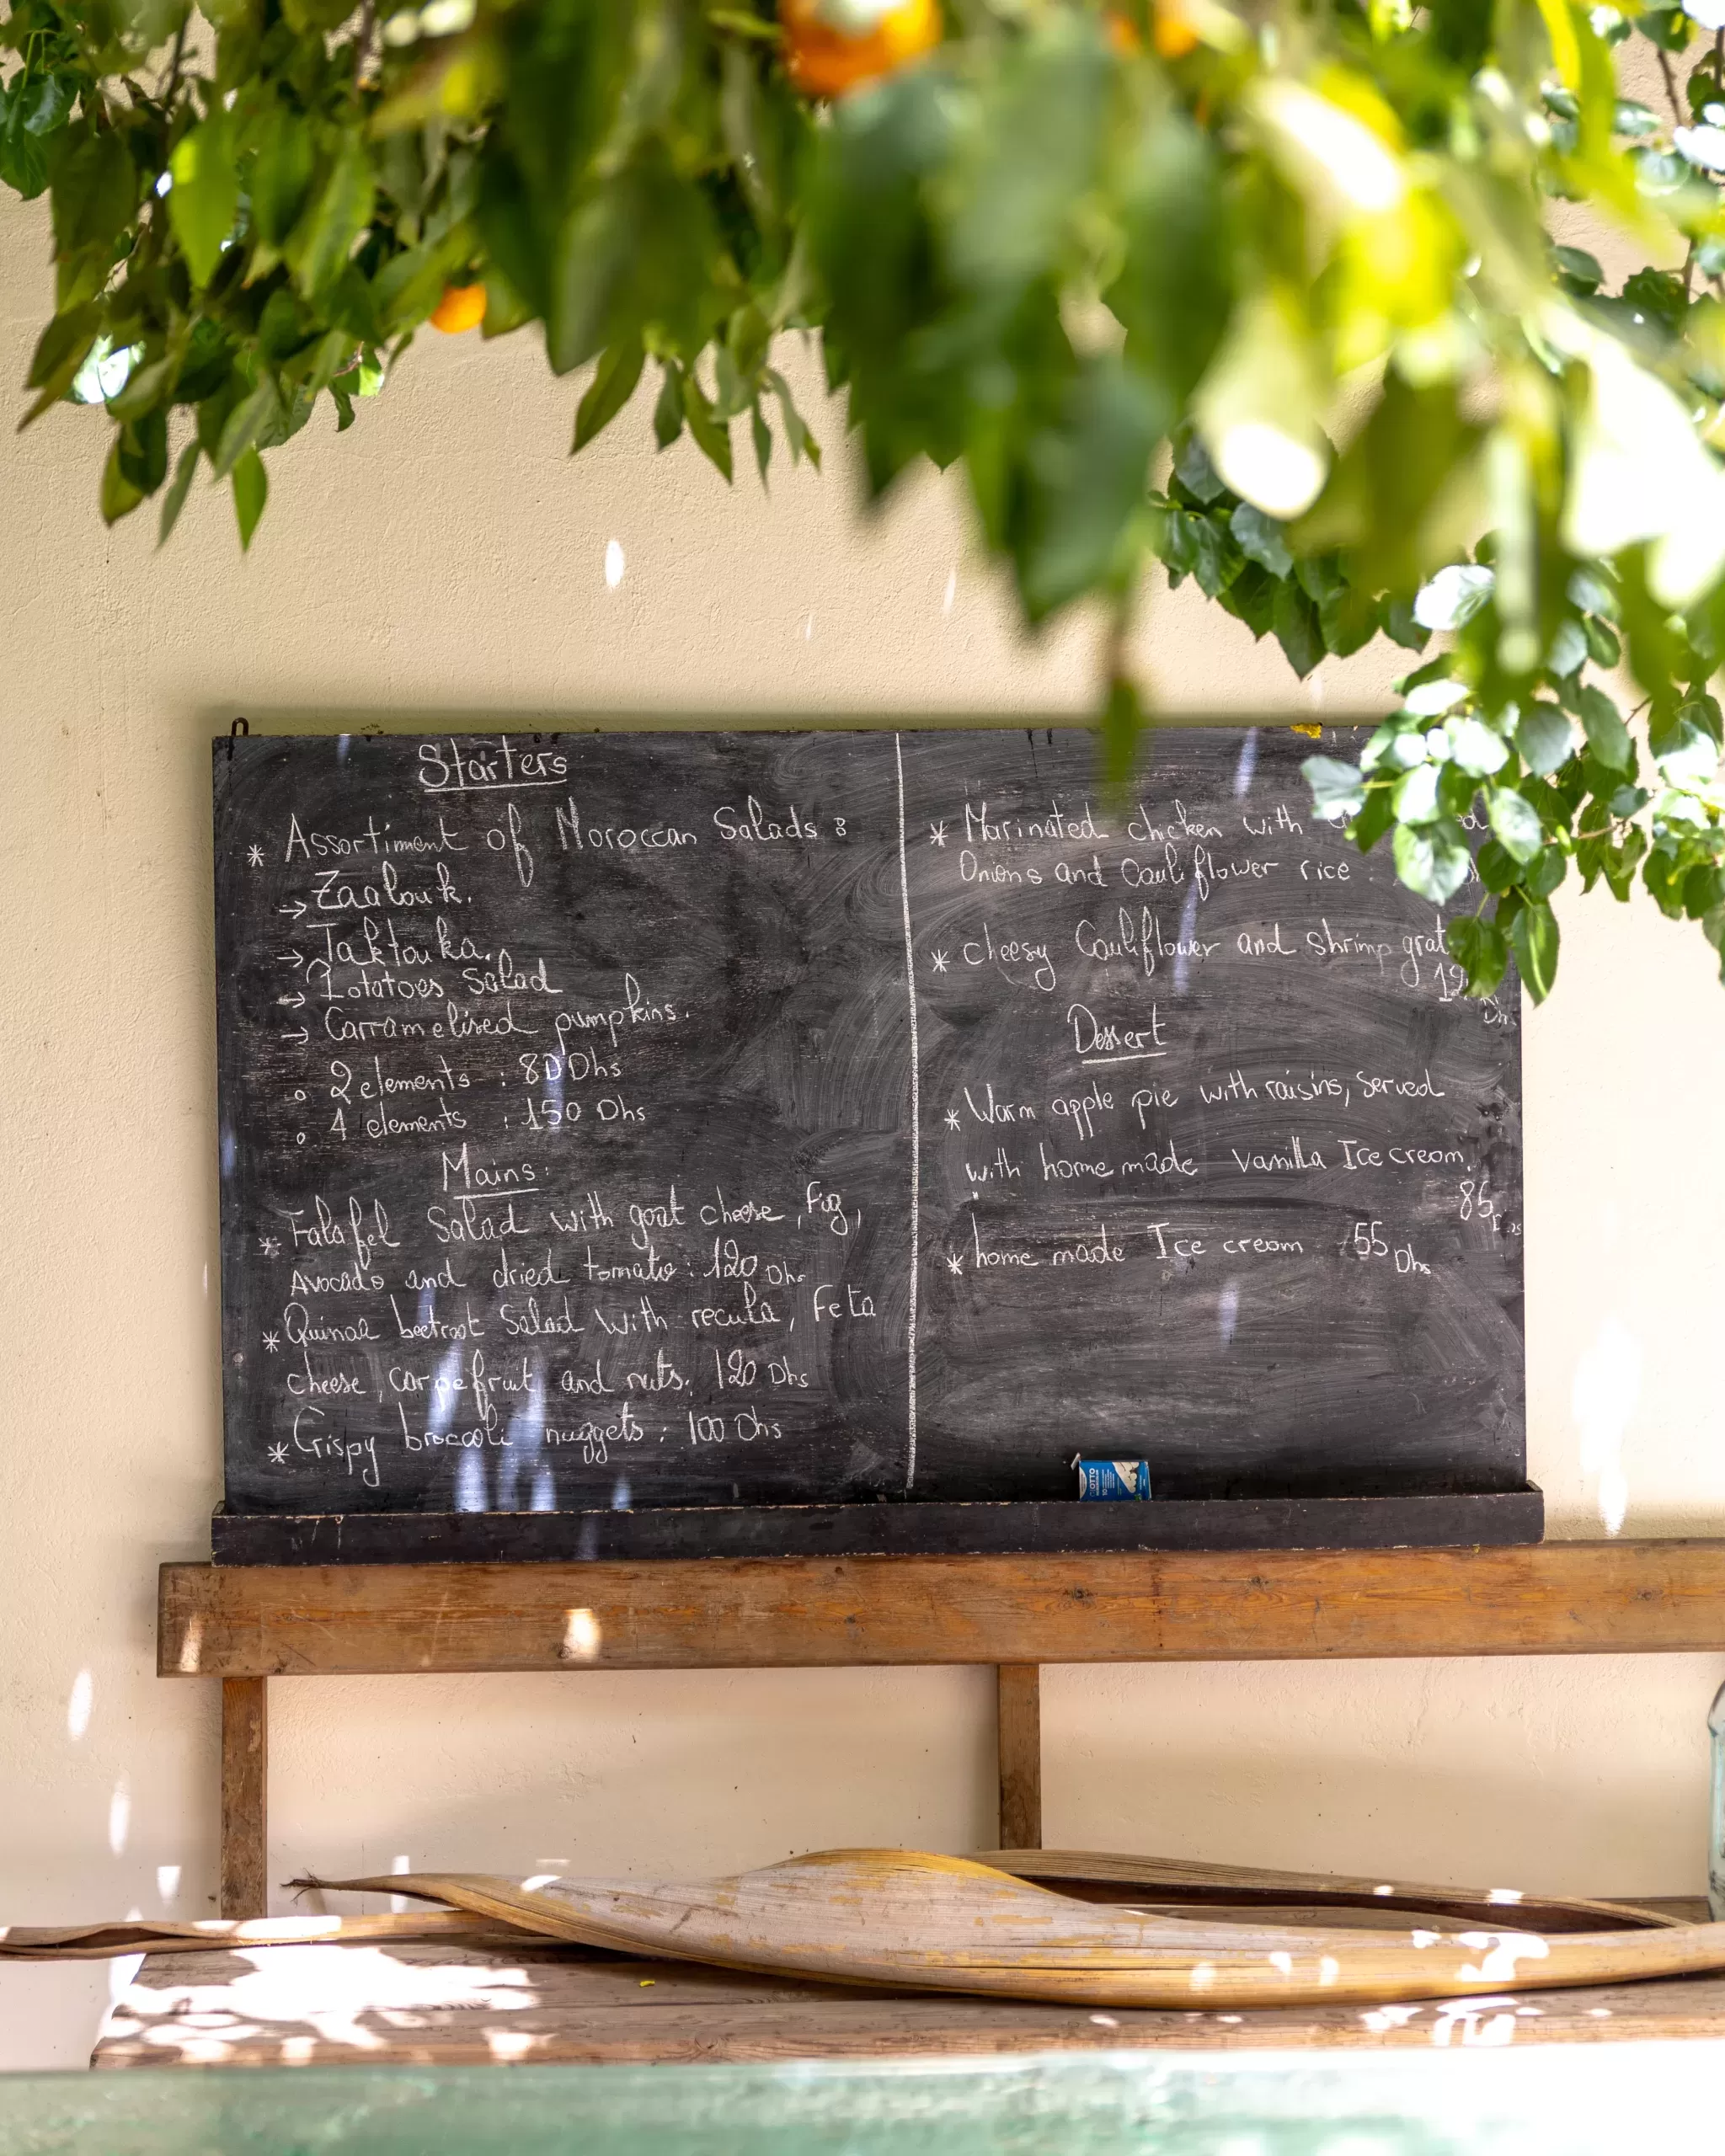 Starters
* Assortiment of Moroccan Salads :
→ Zaalouk.
→ Taktouka.
→ Potatoes Salad
→ Carramelised pumpkins.
o 2 elements : 80 Dhs
o 4 elements : 150 Dhs
Mains:
* Falafel Salad with goat cheese, Fig,
Avocado and dried tomato : 120 Dhs
* Quinoa beetroot Salad with recula, Feta
cheese, carpefruit and nuts. 120 Dhs
* Crispy broccoli nuggets : 100 Dhs
* Marinated chicken with
Onions and Cauliflower rice :
* cheesy Cauliflower and shrimp
Dhs
Dessert
* Warm apple pie with raisins, served
with home made vanilla Ice cream.
85
* home made Ice cream 55 Dhs